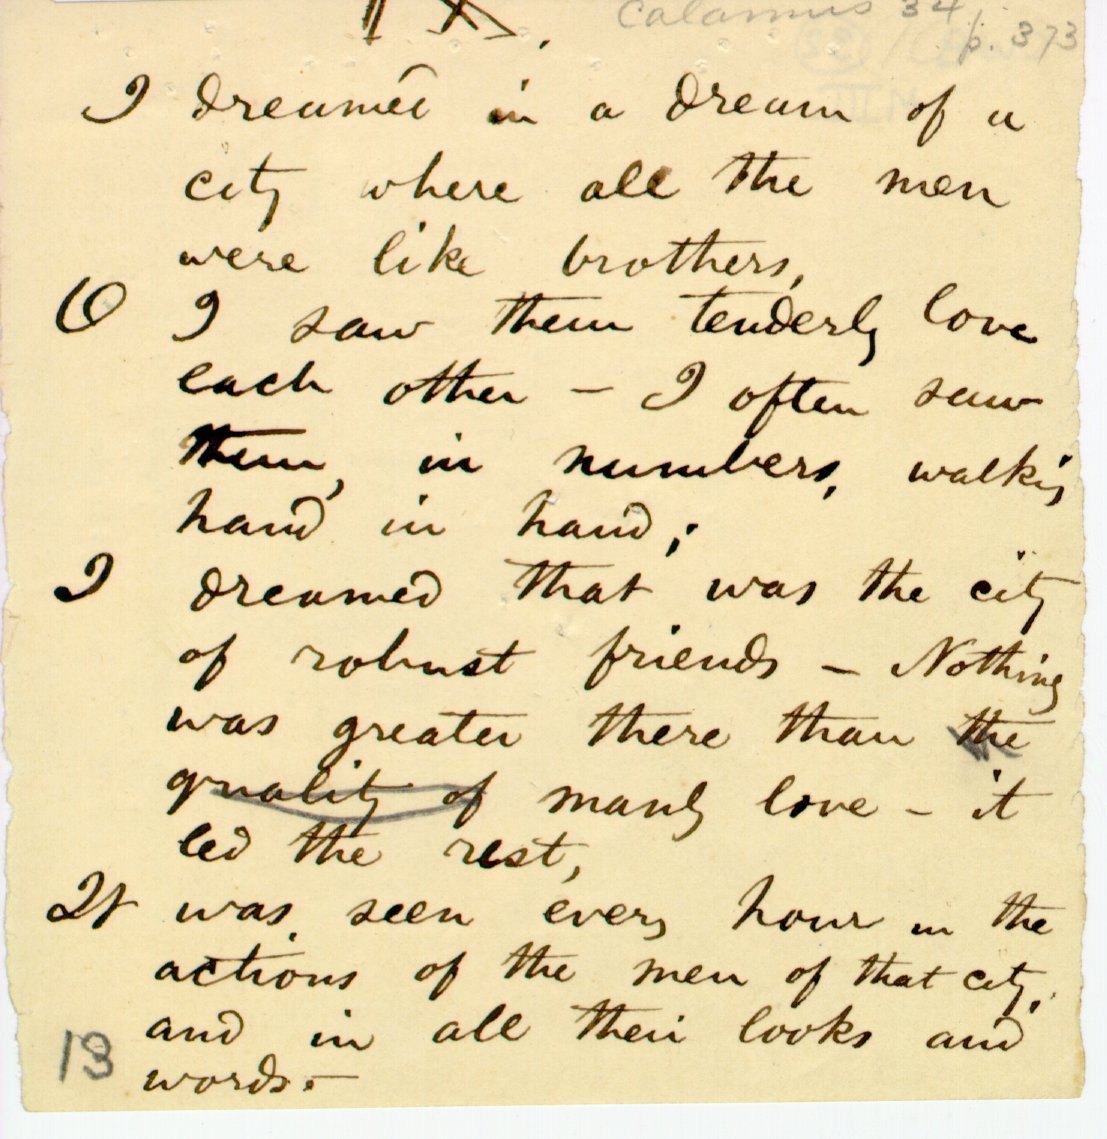 IX.
Calamus 34,
p. 373
I dreamed in a dream of a
city where all the men
were like brothers,
O I saw them tenderly love
each other – I often saw
them, in numbers, walking
hand in hand;
I dreamed that was the city
of robust friends – Nothing
was greater there than the
quality of manly love – it
led the rest,
It was seen every hour in the
actions of the men of that city,
and in all their looks and
words. –
13